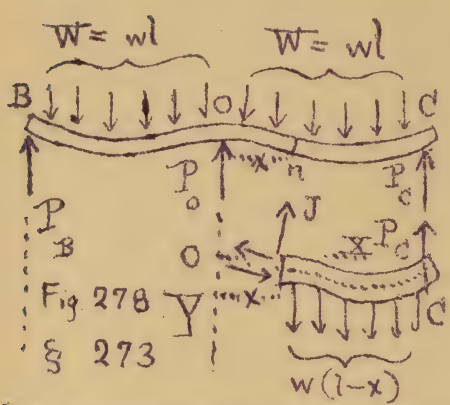 W = wl W = wl
B O C
x n
P_B P_0 P_C
J
O X P_C
Fig. 278 Y x C
§ 273
w(l-x)